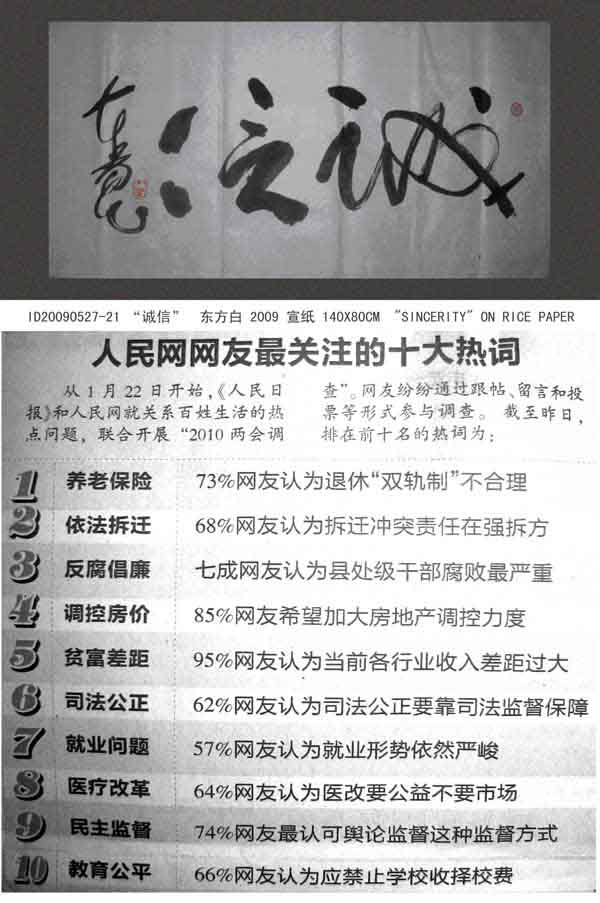 诚信
ID20090527-21 “诚信” 东方白 2009 宣纸 140X80CM "SINCERITY" ON RICE PAPER
人民网网友最关注的十大热词
从1月22日开始,《人民日
报》和人民网就关系百姓生活的热
点问题，联合开展“2010两会调
查”。网友纷纷通过跟帖、留言和投
票等形式参与调查。截至昨日,
排在前十名的热词为：
1 养老保险 73%网友认为退休“双轨制”不合理
2 依法拆迁 68%网友认为拆迁冲突责任在强拆方
3 反腐倡廉 七成网友认为县处级干部腐败最严重
4 调控房价 85%网友希望加大房地产调控力度
5 贫富差距 95%网友认为当前各行业收入差距过大
6 司法公正 62%网友认为司法公正要靠司法监督保障
7 就业问题 57%网友认为就业形势依然严峻
8 医疗改革 64%网友认为医改要公益不要市场
9 民主监督 74%网友最认可舆论监督这种监督方式
10 教育公平 66%网友认为应禁止学校收择校费